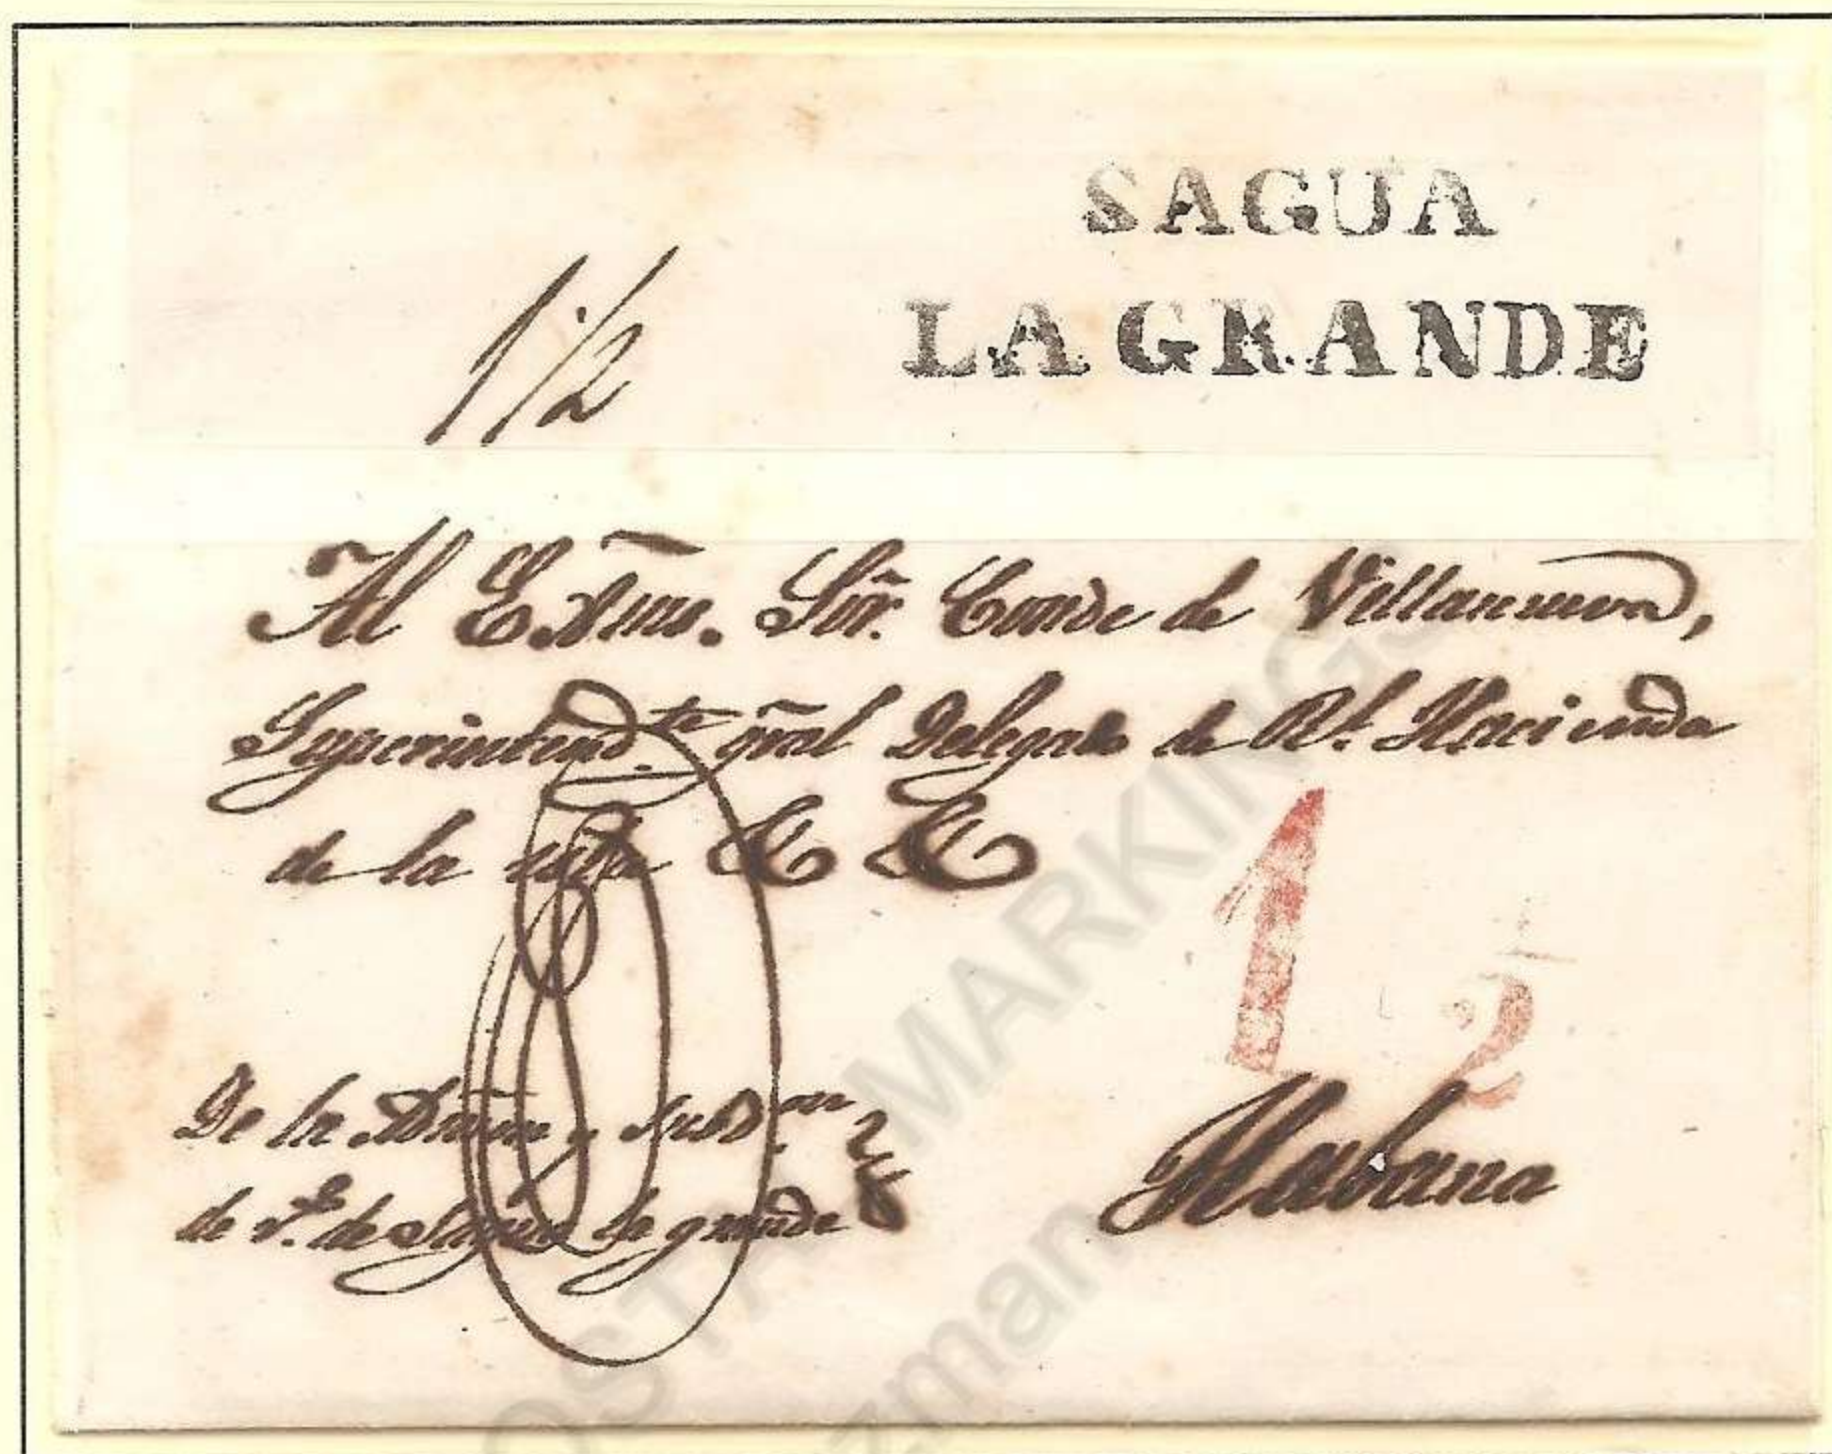 SAGUA
LA GRANDE
1½
Al Exmo. Sõr. Conde de Villanueva,
Superintend.te grãl Delegado de Rl. Hacienda
de la isla &. &.
1½
De la Admõn y Subd.on
de r.s de Sagua la grande
Habana
POSTAL MARKINGS